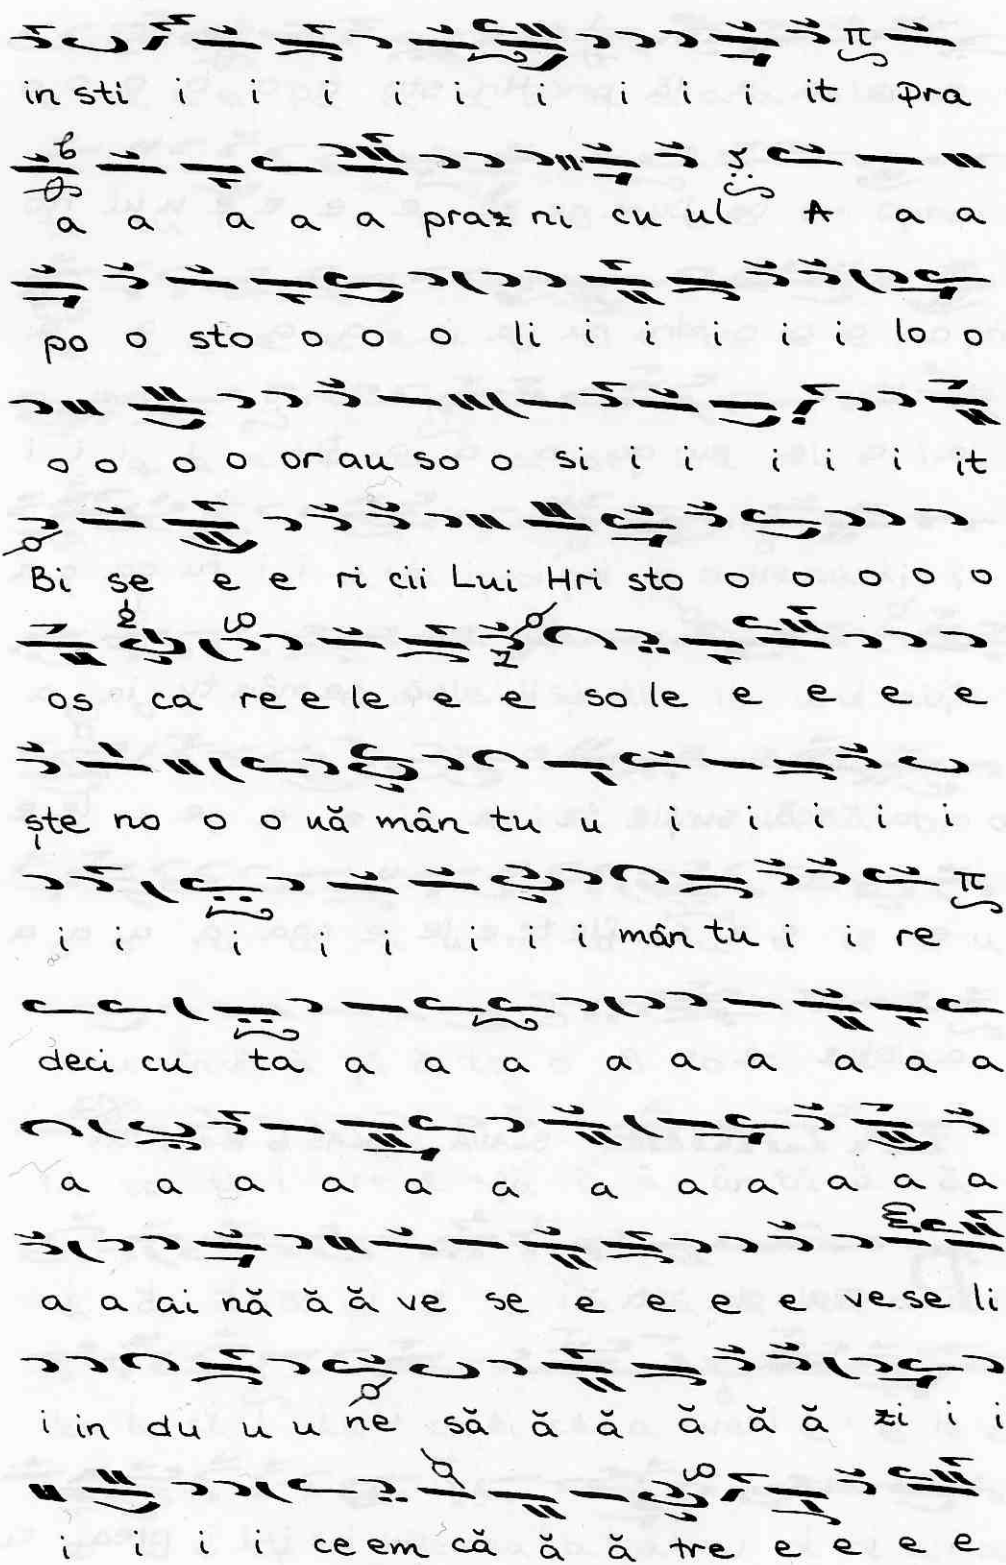 in sti i i i i i i i i it Pra
a a a a a praz ni cu ul A a a
po o sto o o o li i i i i i lo o
o o o o or au so o si i i i i i it
Bi se e e ri cii Lui Hri sto o o o o o
os ca re e le e e i so le e e e e
ște no o o uă mân tu u i i i i i
i i i i i i i i mân tu i i re
deci cu ta a a a a a a a a a
a a a a a a a a a a a a
a a ai nă ă ă ve se e e e e ve se li
i in du u u ne să ă ă ă ă ă zi i i
i i i i ce em că ă ă tre e e e e